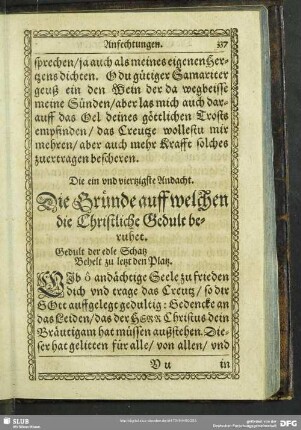 Anfechtungen. 337
sprechen/ ja auch als meines eigenen Her-
tzens dichten. O du gütiger Samariter
geuß ein den Wein der da wegbeisse
meine Sünden/ aber las mich auch dar-
auff das Oel deines göttlichen Trosts
empfinden/ das Creutze wollestu mir
mehren/ aber auch mehr Krafft solches
zuertragen bescheren.
Die ein vnd viertzigste Andacht.
Die Gründe auff welchen
die Christliche Gedult be-
ruhet.
Gedult der edle Schatz
Behelt zu letzt den Platz.
GIb ô andächtige Seele zu frieden
dich vnd trage das Creutz/ so dir
GOtt auffgelegt gedultig: Gedencke an
das Leiden/ das der HERR Christus dein
Bräutigam hat müssen außstehen. Die-
ser hat gelitten für alle/ von allen/ vnd
Vu in
SLUB
Wir führen Wissen.
gefördert von der
Deutschen Forschungsgemeinschaft
DFG